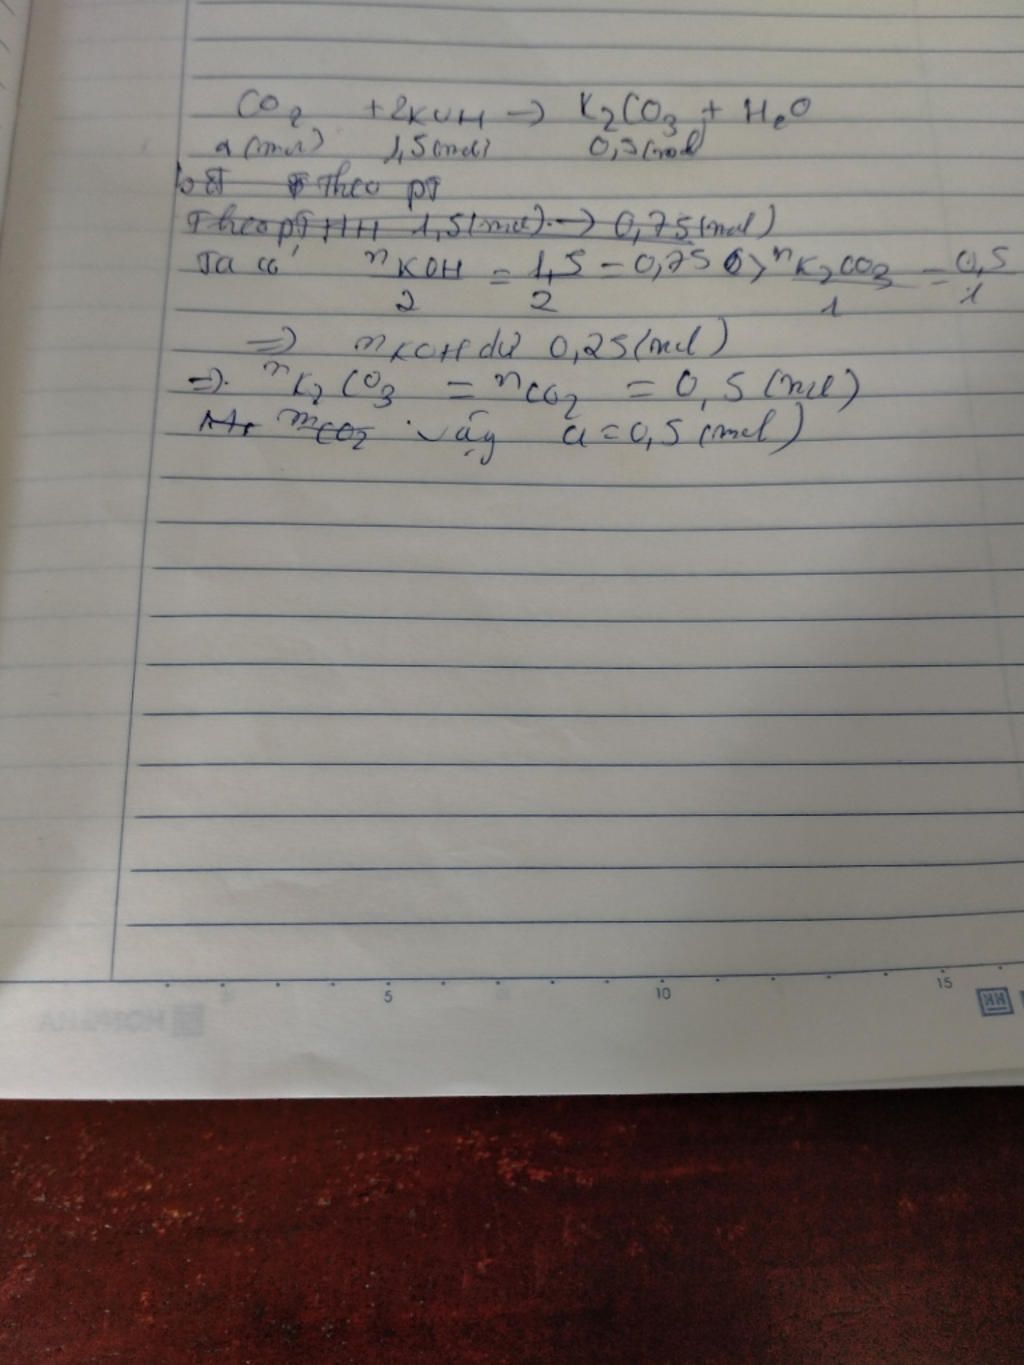 CO2 + 2KOH → K2CO3 + H2O
a(mol) 1,5(mol) 0,5(mol
Theo pT
Theo pTHH 1,5(mol) → 0,75(mol)
Ta có nKOH/2 = 1,5/2 = 0,75 > nK2CO3/1 = 0,5/1
=> nKOH dư 0,25(mol)
=> nK2CO3 = nCO2 = 0,5(mol)
mCO2 vậy a = 0,5(mol)
5 10 15
HH